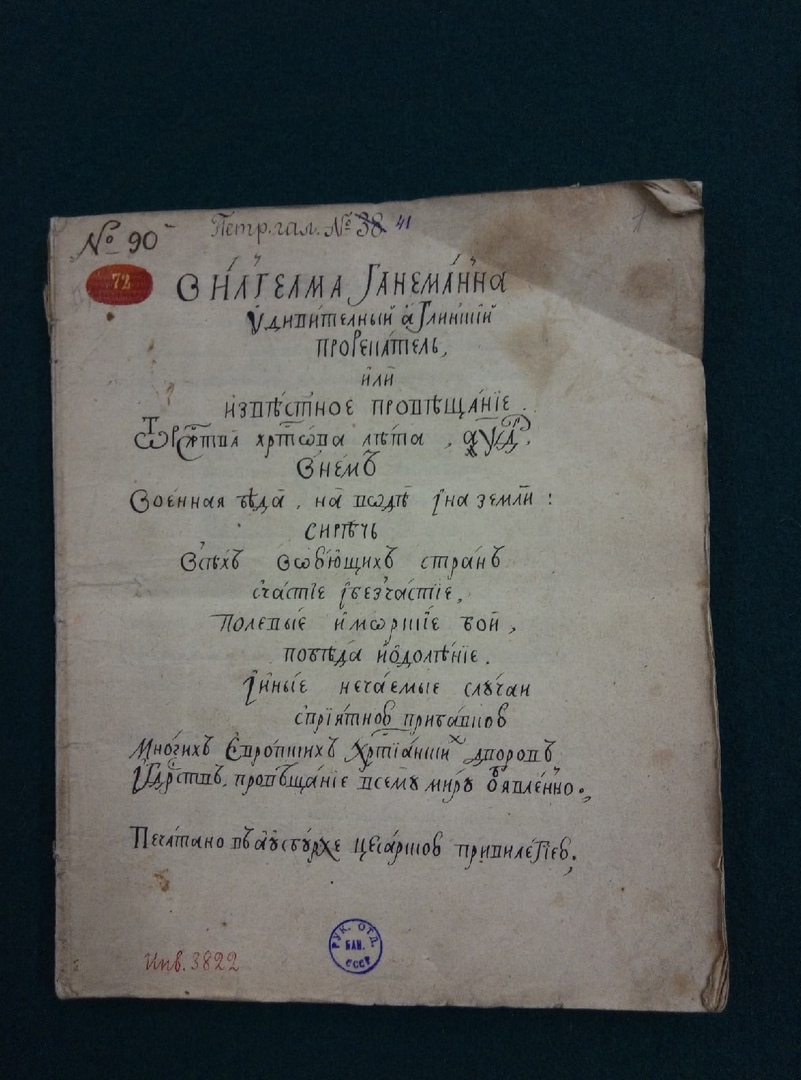 № 90
Петр. гал. № 38 41
1
72
Вилгелма Ганеманна
Удивителный аглинскїй
прогенатель,
или
извѣстное провѣщанїе.
Ѿ рождства хртⷭ҇ова лѣта, ҂аѱд҃,
Внемъ
Военная бѣда, на водѣ їна земли:
сирѣчь
Всѣхъ воюющихъ странъ
счастїе їбезчастїе,
полевые иморскїе бои,
побѣда иѻдолѣнїе.
Їнные нечаемые случаи
сприятною прибавкою
Многихъ Европскихъ Хртїанскихъ дворовъ
Царствъ, провѣщанїе всему миру объявленно.,
Печатано въаугсбурхе цесарскою привилегїею,
Инв. 3822
РУК. ОТД.
БАН.
СССР